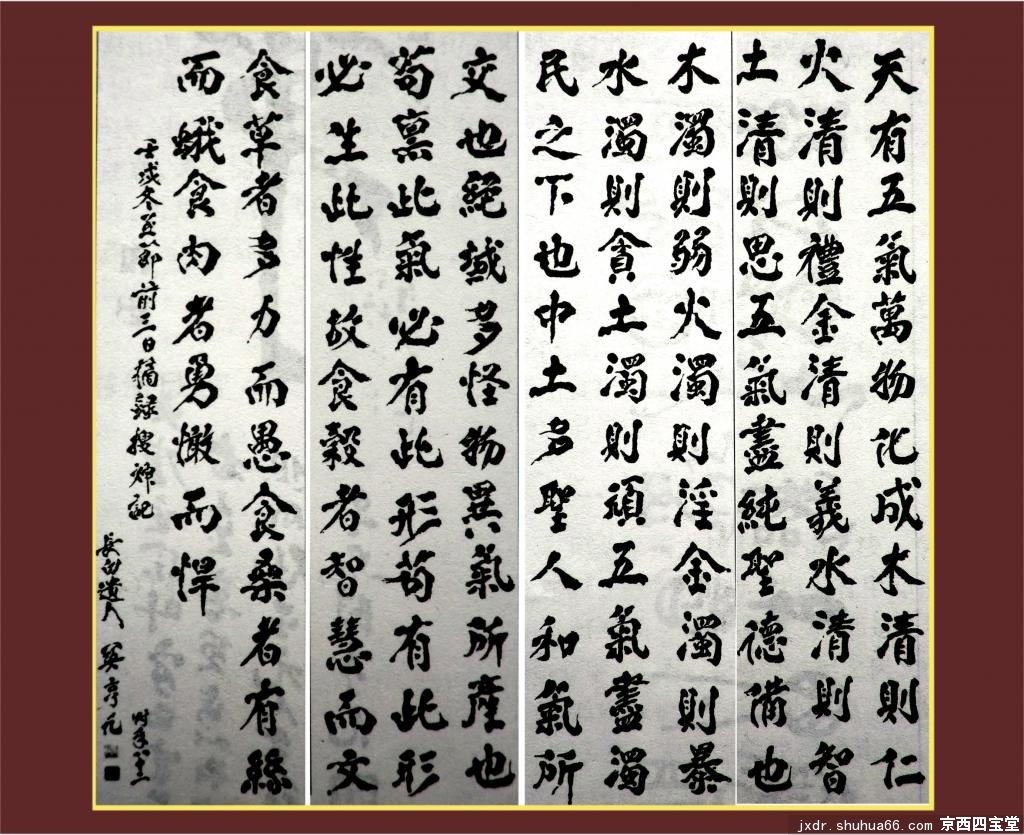 天有五氣萬物化成木清則仁
火清則禮金清則義水清則智
土清則思五氣盡純聖德備也
木濁則弱火濁則淫金濁則暴
水濁則貪土濁則頑五氣盡濁
民之下也中土多聖人和氣所
交也絕域多怪物異氣所產也
苟稟此氣必有此形苟有此形
必生此性故食穀者智慧而文
食草者多力而愚食桑者有絲
而蛾食肉者勇憿而悍
壬戌冬至節前三日摘錄搜神記
長白遺人
時年八十
jxdr.shuhua66.com 京西四宝堂